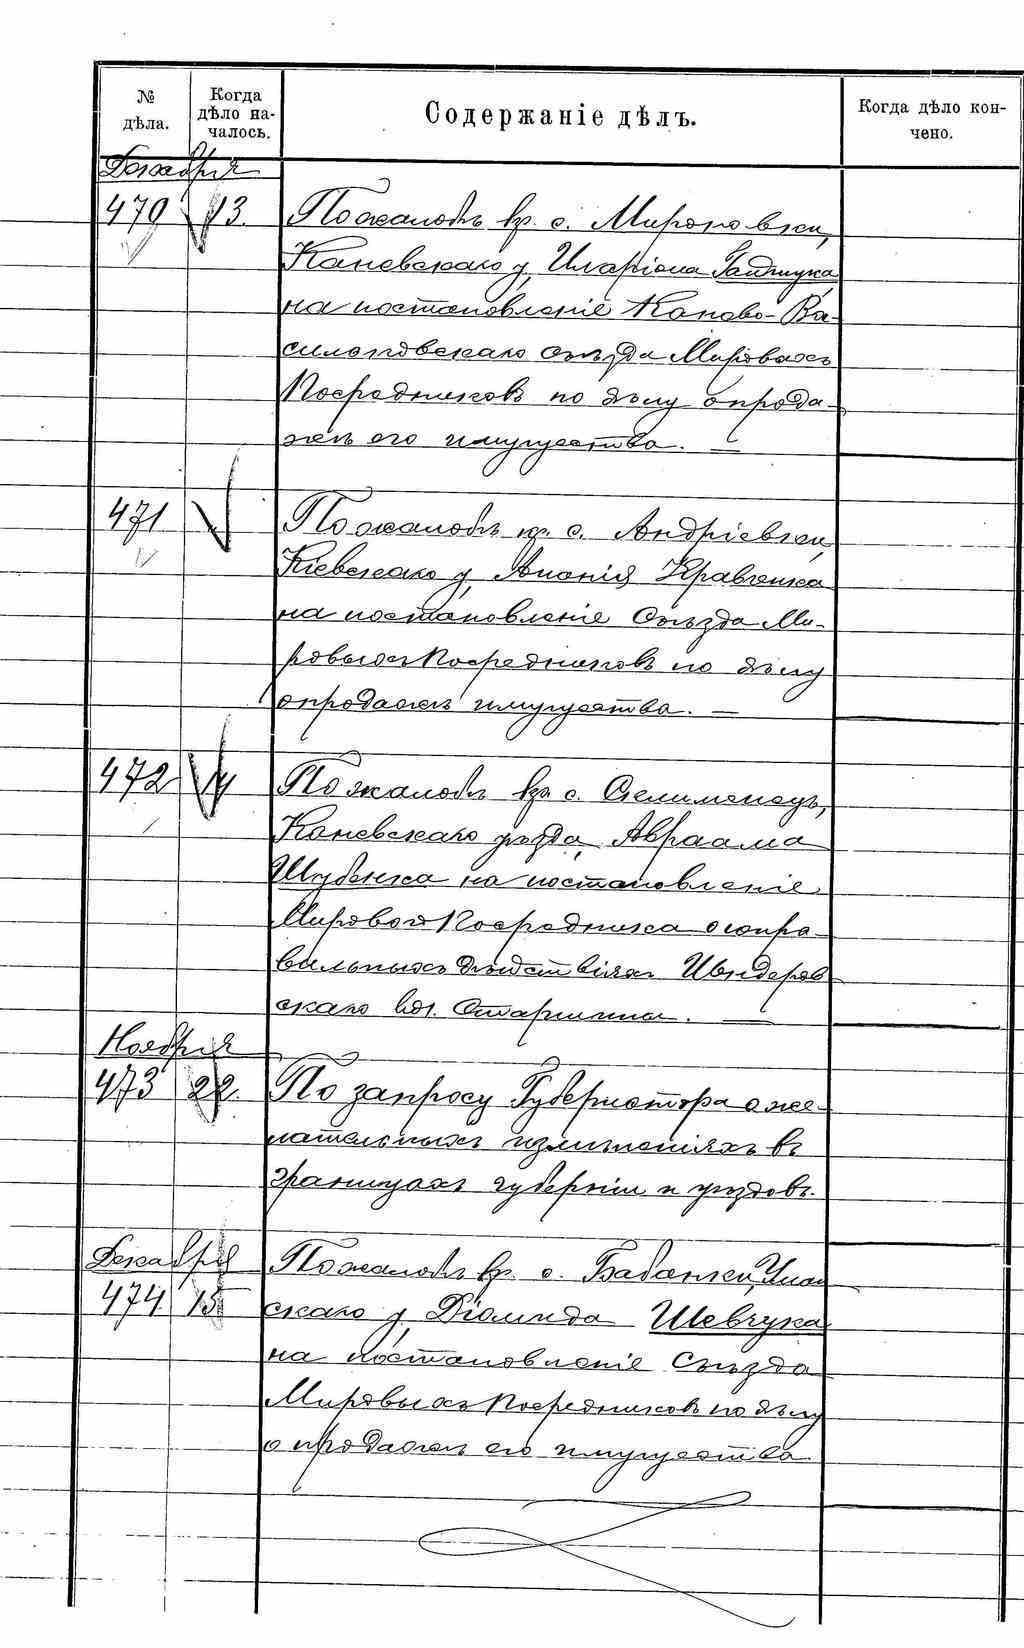 № дѣла.
Когда дѣло на-
чалось.
Содержаніе дѣлъ.
Когда дѣло кон-
чено.
Декабря
470 13. По жалобѣ кр. с. Мироновки,
Каневскаго у. Иларіона Гайдука
на постановленіе Канево-Ва-
сильковскаго съѣзда Мировыхъ
Посредниковъ по дѣлу о прода-
жѣ его имущества. —
471 По жалобѣ кр. с. Андріевки
Кіевскаго у. Ананія Кравченка
на постановленіе Съѣзда Ми-
ровыхъ Посредниковъ по дѣлу
о продажѣ имущества. —
472 14 По жалобѣ кр. с.
Каневскаго уѣзда, Авраама
Шубенка на постановленіе
Мирового Посредника о непра-
вильныхъ дѣйствіяхъ
скаго вол. Старшины. —
Ноября
473 22. По запросу Губернатора о же-
лательныхъ измѣненіяхъ въ
границахъ губерніи и уѣздовъ.
Декабря
474 15 По жалобѣ кр. с. Бабанки, Уман-
скаго у. Діомида Шевчука
на постановленіе Съѣзда
Мировыхъ Посредниковъ по дѣлу
о продажѣ его имущества